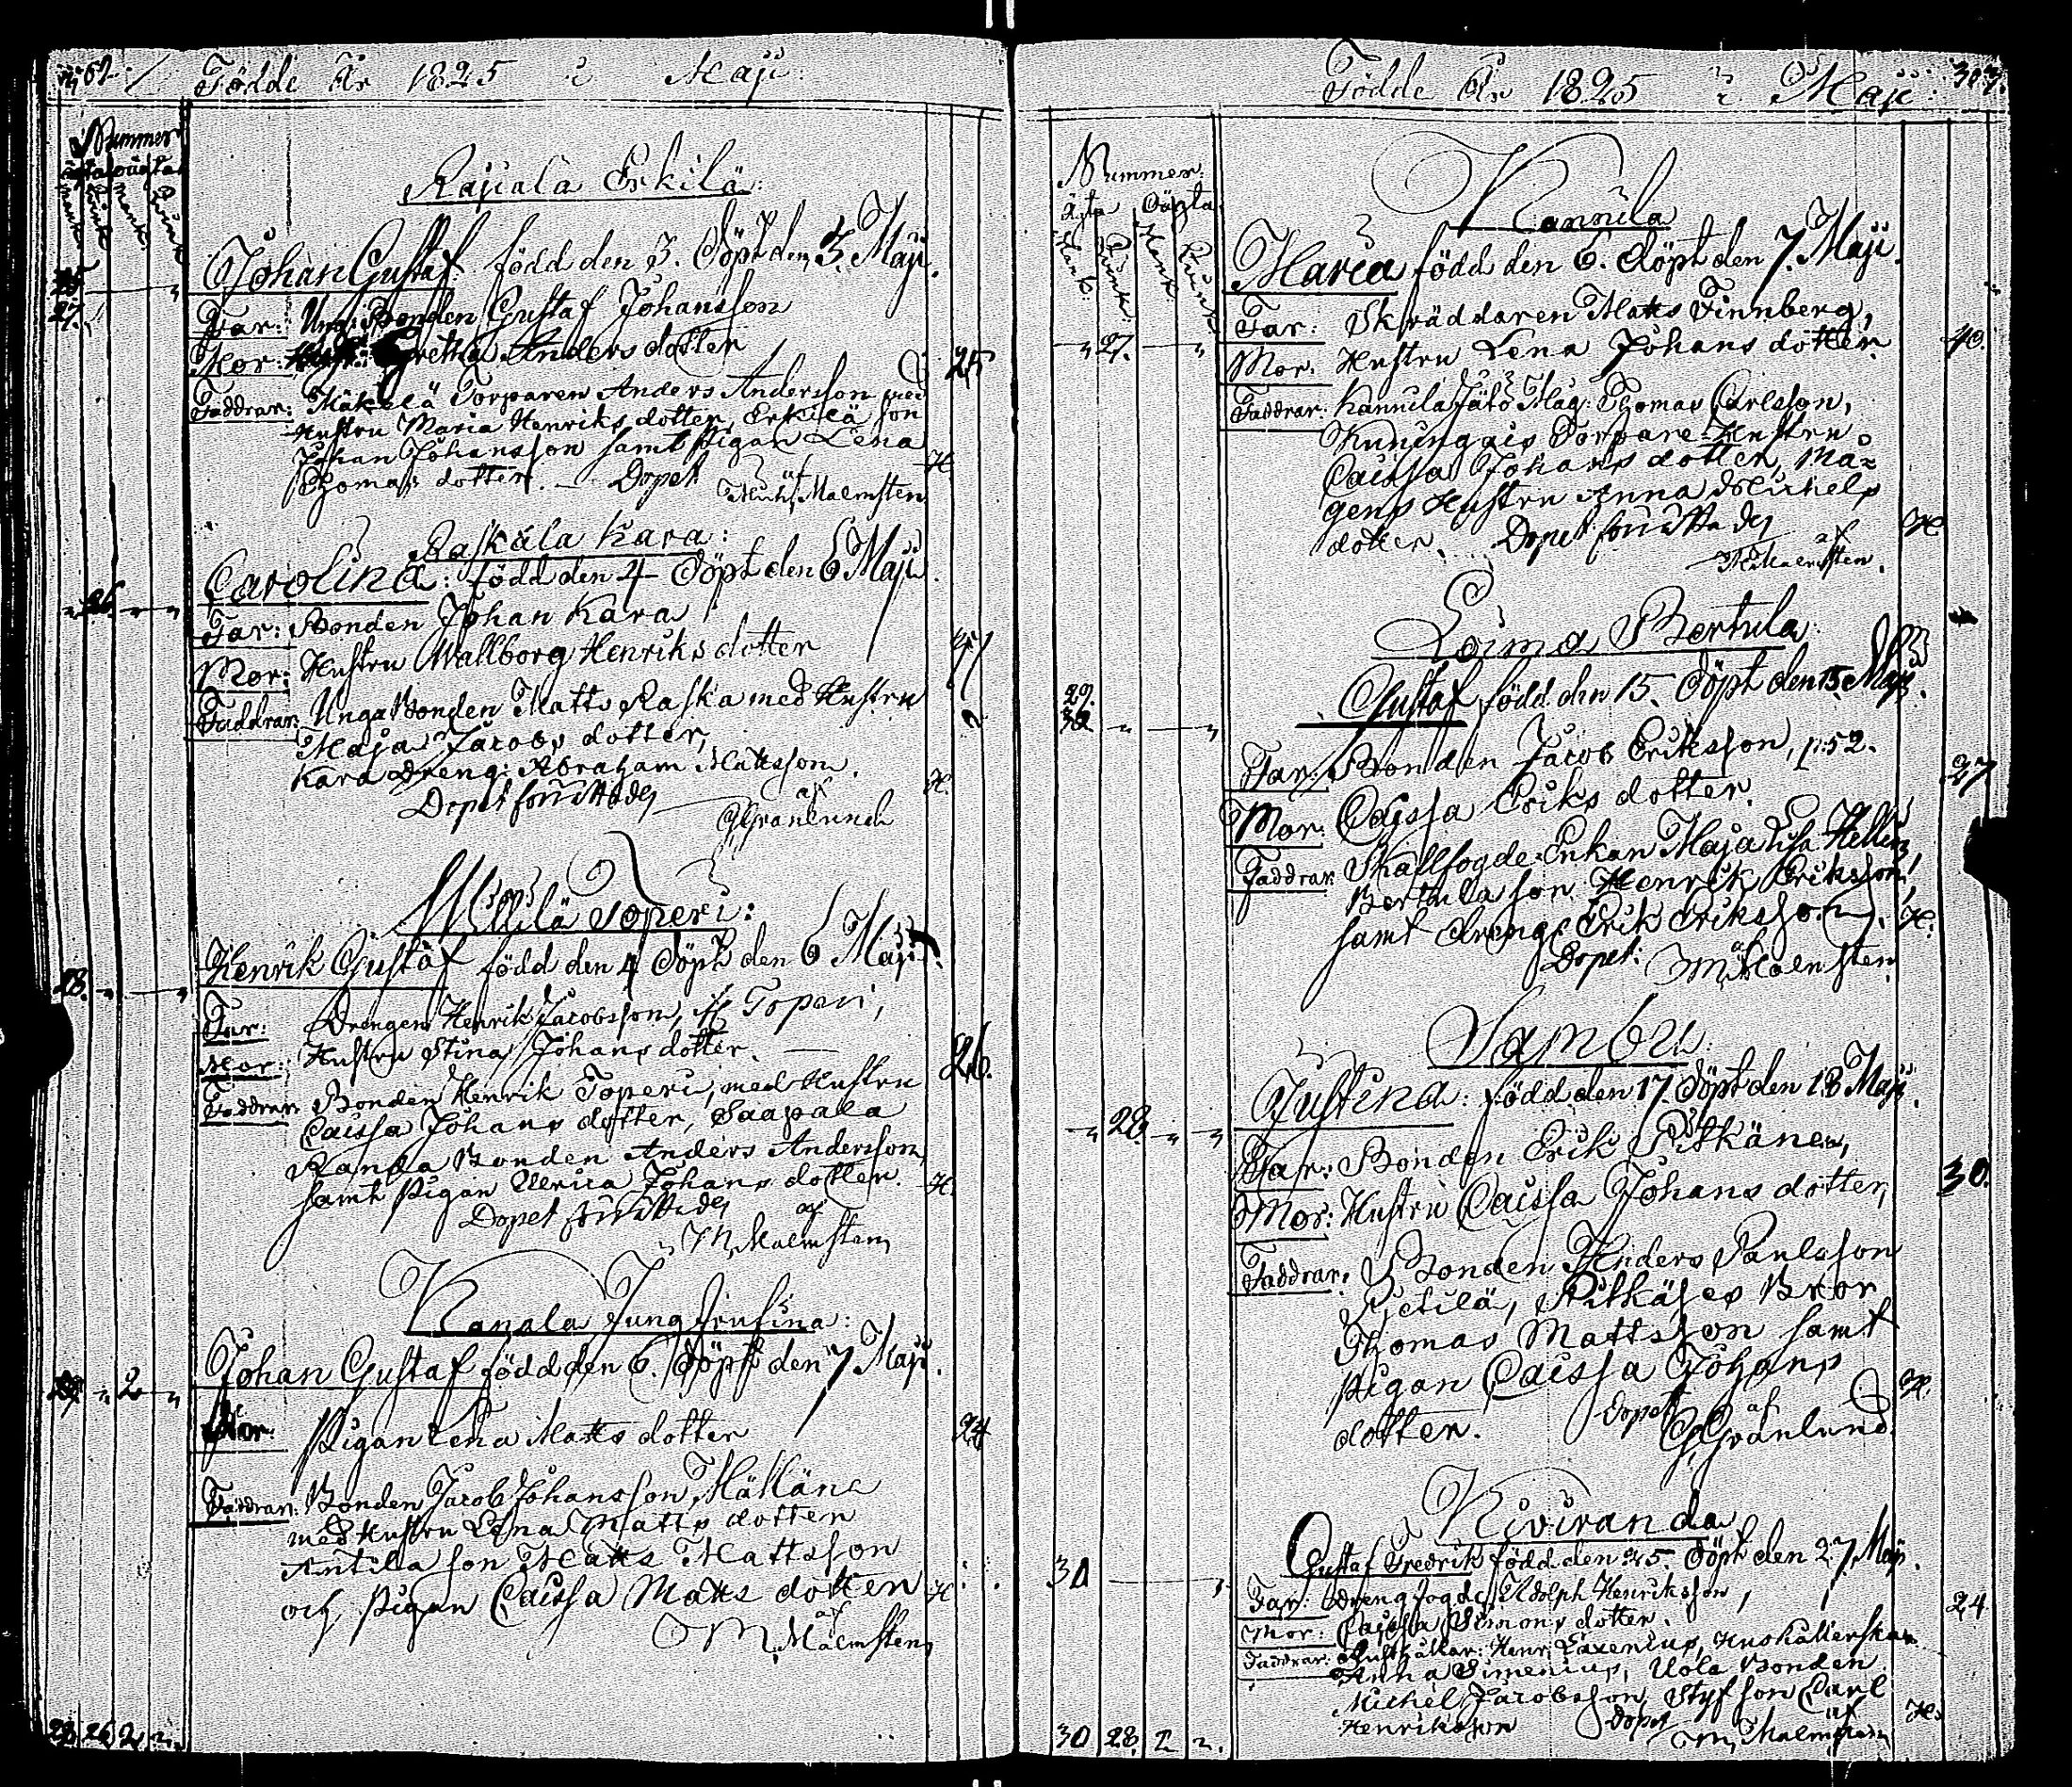 Födde År 1825 i Maji:
Nummer
Rajcala Erkilä:
Johan Gustaf född den 3. Döpt den 3. Maji.
27.
Far: Ung: Bonden Gustaf Johansson
Mor: Gretha Anders dotter
25
Faddrar: Mäkelä Torparen Anders Andersson med
Hustru Maria Henriks dotter, Erkilä son
Johan Johansson samt Pigan Lena
Thomas dotter. Dopet
af
Mich: Malmsten
Raskala Kara:
Carolina: född den 4 Döpt den 6 Maji.
26
Far: Bonden Johan Kara
Mor: Hustru Wallborg Henriks dotter
Faddrar: Unga Bonden Matts Raska med Hustru
Maja Jacobs dotter,
Kara Dreng: Abraham Mattsson.
Dopet förrättades af
G Granlund
Willilä Toperi:
Henrik Gustaf född den 4 Döpt den 6 Maji.
28.
Far: Drengen Henrik Jacobsson, Toperi,
Mor: Hustru Stina Johans dotter.
26.
Faddrar: Bonden Henrik Toperi, med Hustru
Caissa Johans dotter, Saapala
Randa Bonden Anders Andersson,
samt Pigan Ulrica Johans dotter.
Dopet förrättades af
M. Malmsten
Kanala Jungfrusina:
Johan Gustaf född den 6. Döpt den 7 Maji.
2
Mor: Pigan Lena Matts dotter
24
Faddrar: Bonden Jacob Johansson, Mällänä
med Hustru Lena Matts dotter
Antila son Matts Mattsson
och Pigan Caissa Matts dotter
af
M. Malmsten
28. 26. 2. ".
Födde År 1825 i Maji: 303.
Nummer:
Ägta Oägta
Kannila
Maria född den 6. Döpt den 7. Maji.
Far: Skräddaren Matts Finnberg,
27.
Mor: Hustru Lena Johans dotter
40.
Faddrar: Kannila Mag: Thomas Carlsson,
Kuningais Torpare Hustru
Caissa Johans dotter, Ma=
gens Hustru Anna Michels
dotter. Dopet förrättades
af
M Malmsten.
Loima Bertula:
Gustaf född den 15. Döpt den 15 Maji.
29.
Far: Bonden Jacob Eriksson, p: 52.
27
Mor: Caissa Eriks dotter.
Faddrar: Skallfogde Enkan Maja Lisa Hellen,
Bertula son Henrik Eriksson,
samt dreng Erik Eriksson.
Dopet: af
M. Malmsten
Sambu
Justina: född den 17 Döpt den 18 Maji.
28.
Far: Bonden Erik Pitkänen,
30.
Mor: Hustru Caissa Johans dotter,
Faddrar: Bonden Anders Paulsson
Kietilä, Bror
Thomas Mattsson samt
Pigan Caissa Johans
dotter. Dopet af
G Granlund
Kiviranda
Gustaf Fredrik född den 25. Döpt den 27. Maji.
30
Far: Drengfogde Adolph Henriksson,
24
Mor: Cajssa Simons dotter.
Faddrar: Rusthållar: Henr: Laxenius, Hushållerskan
Anna Simenius, Uola Bonden
Michel Jacobsson, Styfson Carl
Henriksson Dopet af
M. Malmsten
30 28. 2 ".